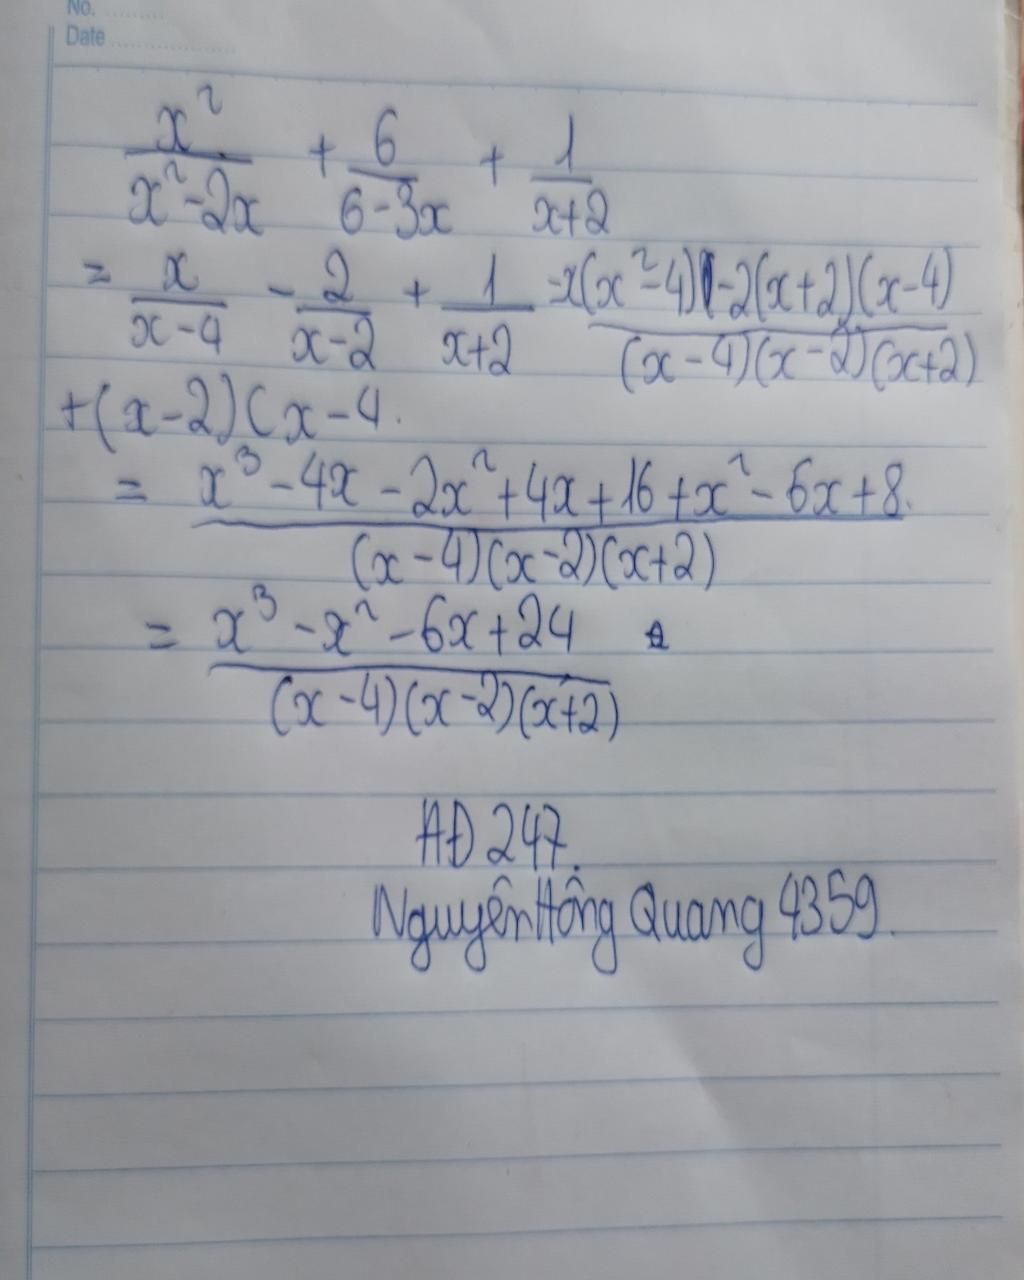 No. ..........
Date ....................
x²/(x²-2x) + 6/(6-3x) + 1/(x+2)
= x/(x-4) - 2/(x-2) + 1/(x+2) = x(x²-4) - 2(x+2)(x-4)/(x-4)(x-2)(x+2)
+(x-2)(x-4.
= x³-4x-2x²+4x+16+x²-6x+8./(x-4)(x-2)(x+2)
= x³-x²-6x+24/(x-4)(x-2)(x+2)
AĐ 247.
Nguyễn Hồng Quang 4359.